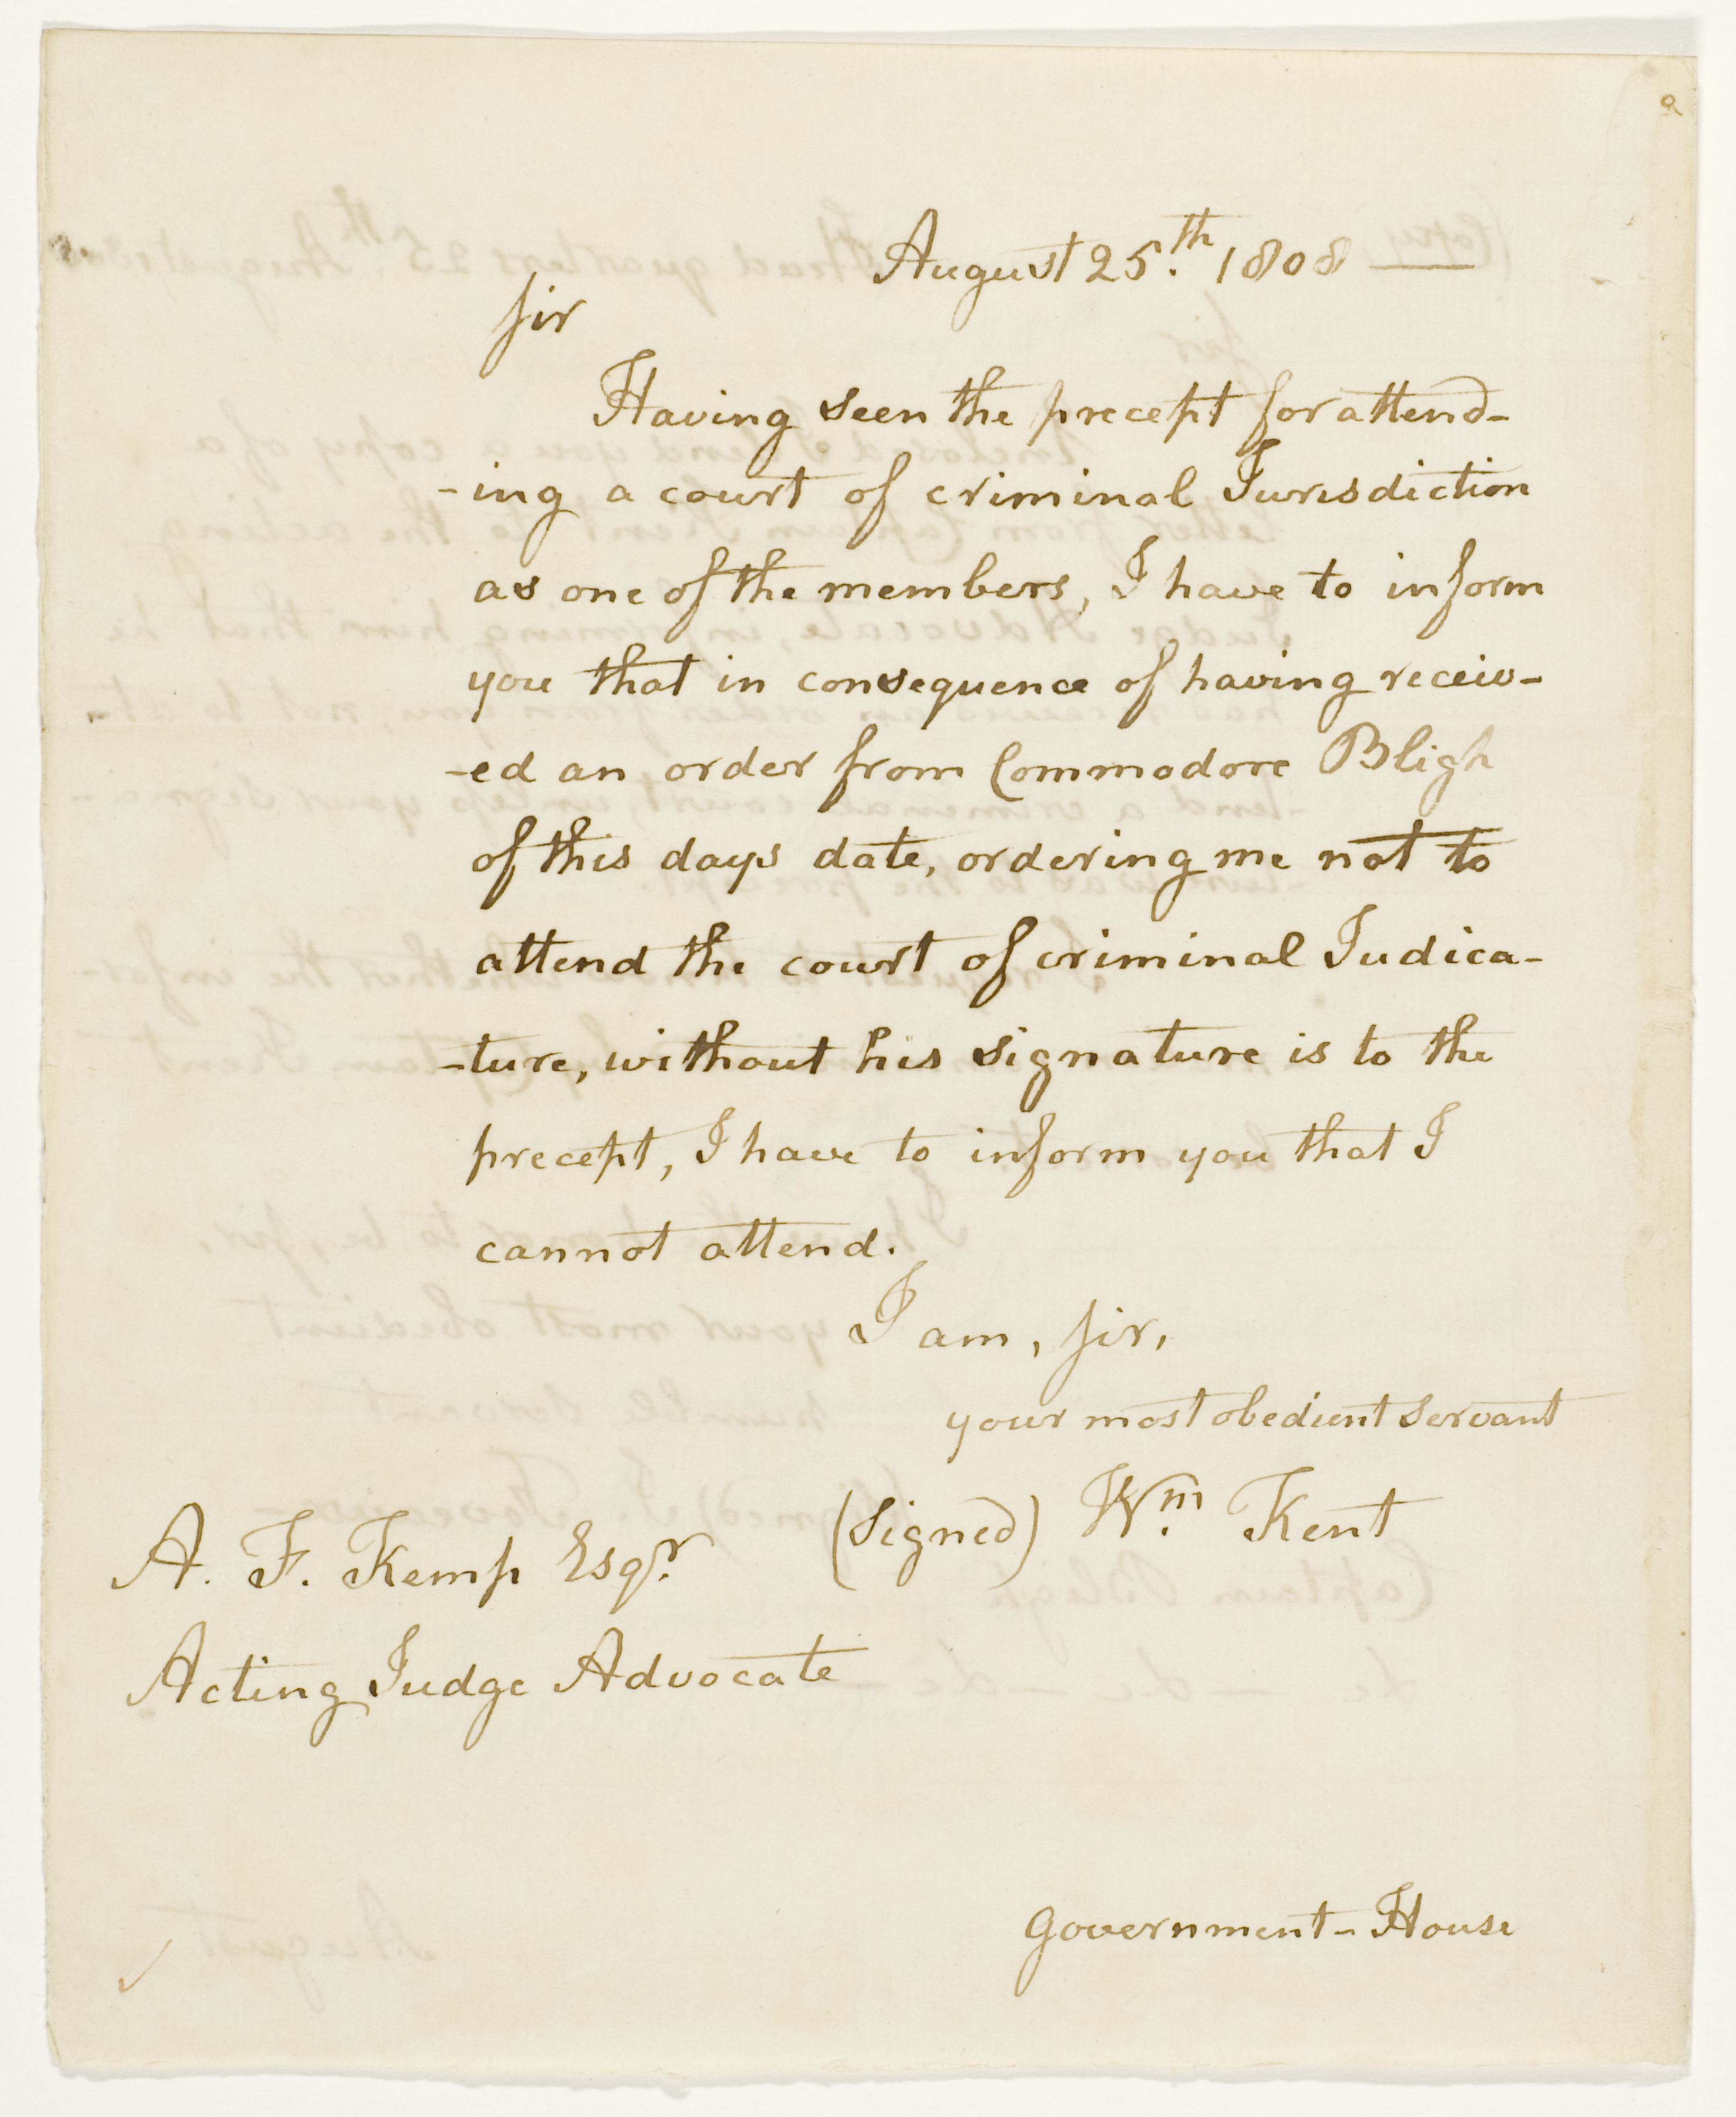 August 25.th 1808
Sir
Having seen the precept for attend-
-ing a court of criminal Jurisdiction
as one of the members, I have to inform
you that in consequence of having receiv-
-ed an order from Commodore Bligh
of this days date, ordering me not to
attend the court of criminal Judica-
-ture, without his signature is to the
precept, I have to inform you that I
cannot attend.
I am, Sir,
your most obedient servant
(Signed) Wm. Kent
A. F. Kemp Esqr.
Acting Judge Advocate
Government-House